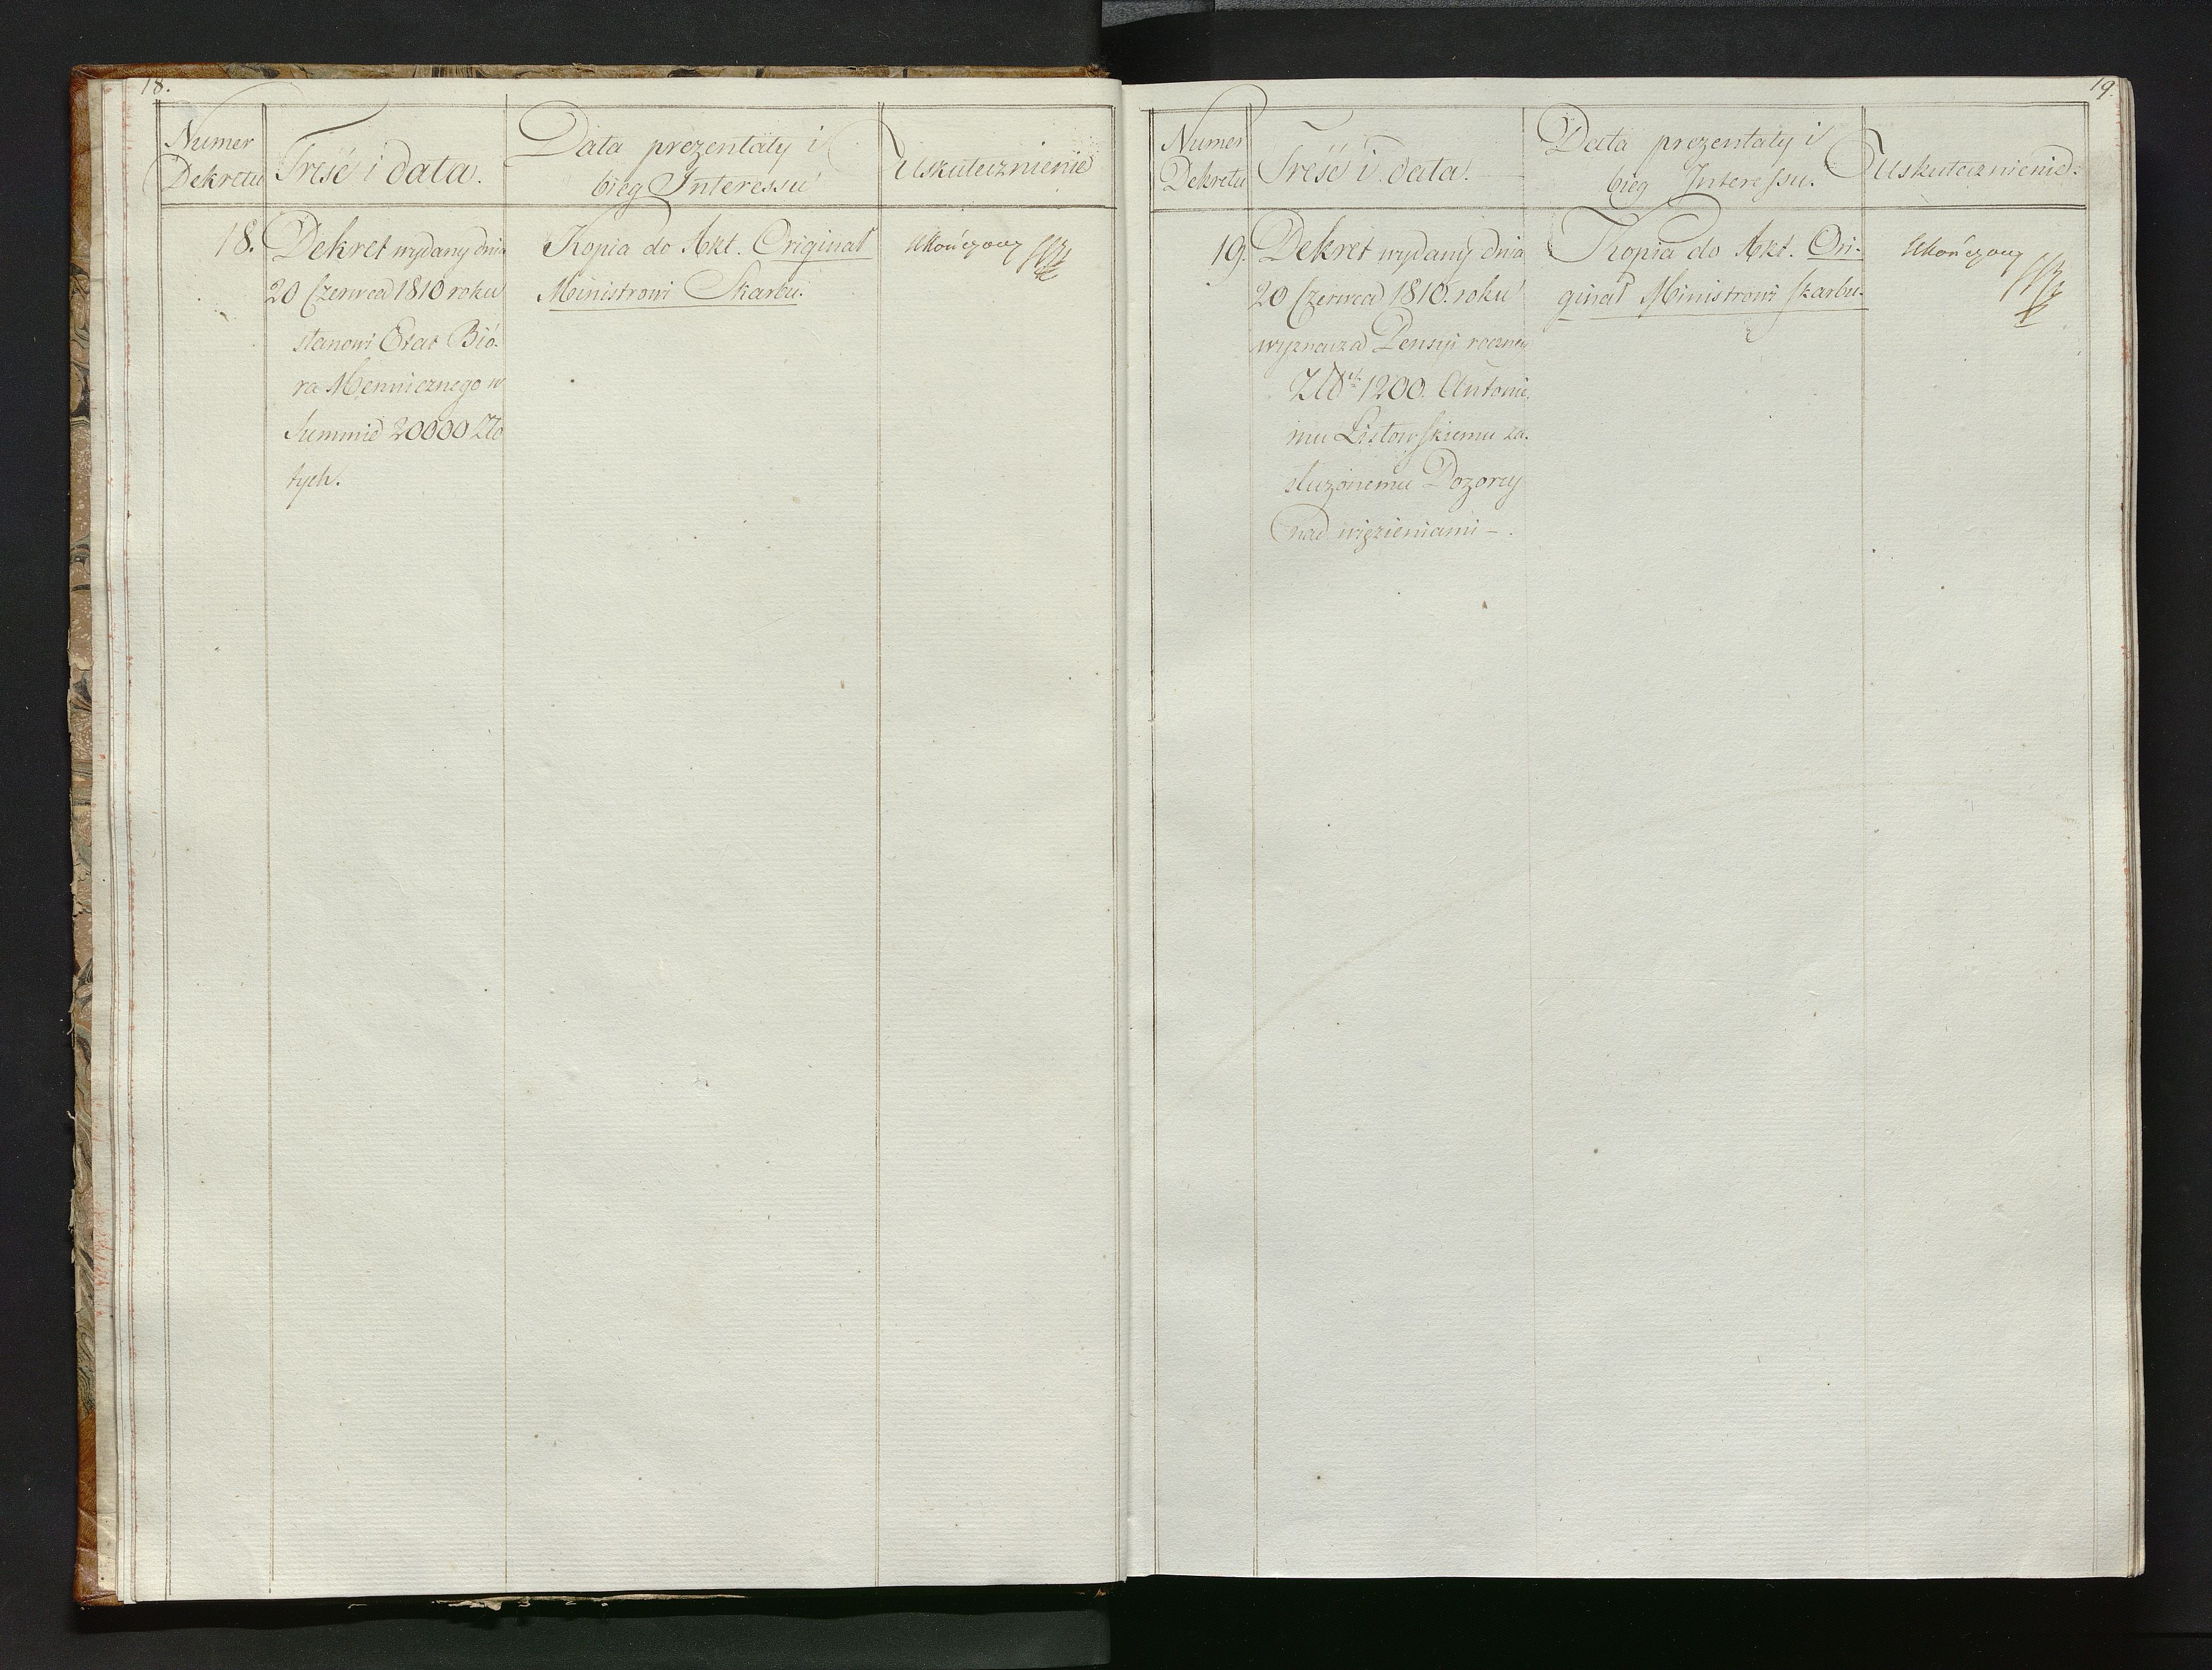 18.
Numer Dekretu
Treść i data.
Data prezentaty i
bieg Interessu
Uskutecznienie
18.
Dekret wydany dnia
20 Czerwca 1810 roku
stanowi Etat Bió-
ra Mennicznego w
Summie 20000 Zło
tych.
Kopia do Akt. Originał
Ministrowi Skarbu.
Ukończony
19.
Numer Dekretu
Treść i data.
Data prezentaty i
bieg Interessu.
Uskutecznienie:
19.
Dekret wydany dnia
20 Czerwca 1810. roku
wyznacza Pensyi roczney
Złł 1200. Antonie-
mu Listowskiemu za-
służonemu Dozorcy
nad więzieniami -.
Kopia do Akt. Ori-
ginał Ministrowi Skarbu.
Ukończony